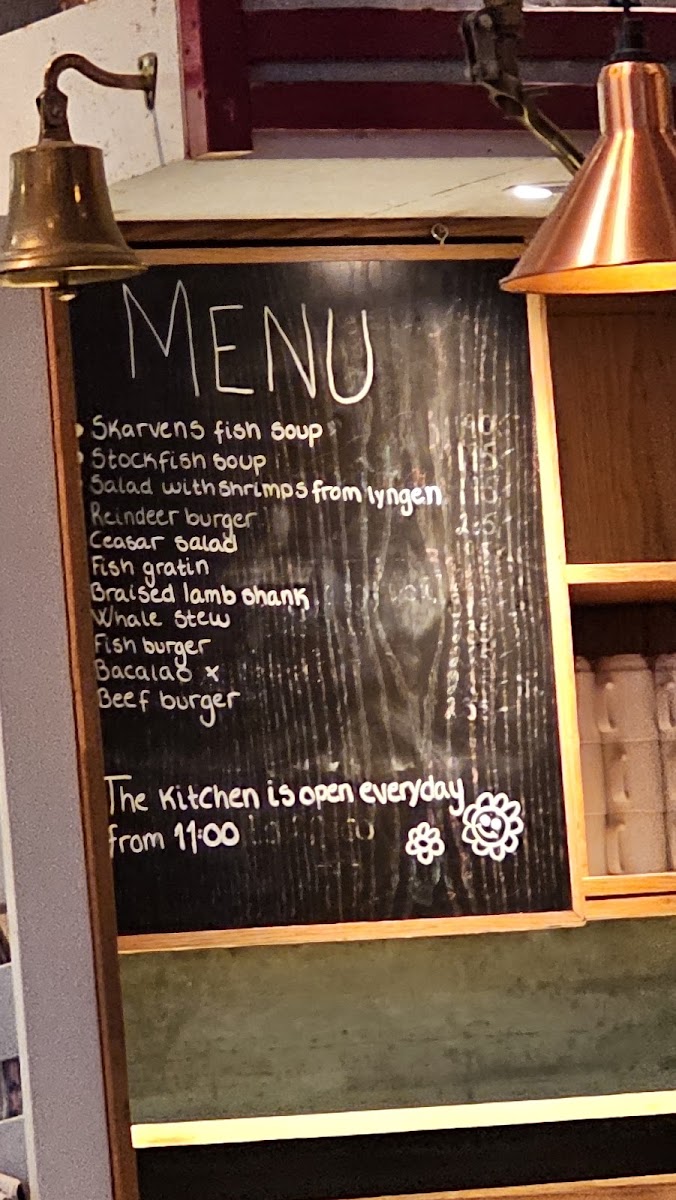 MENU
Skarvens fish soup
Stockfish soup
Salad with shrimps from lyngen
Reindeer burger
Ceasar salad
Fish gratin
Braised lamb shank
Whale stew
Fish burger
Bacalao x
Beef burger
The kitchen is open everyday
from 11:00